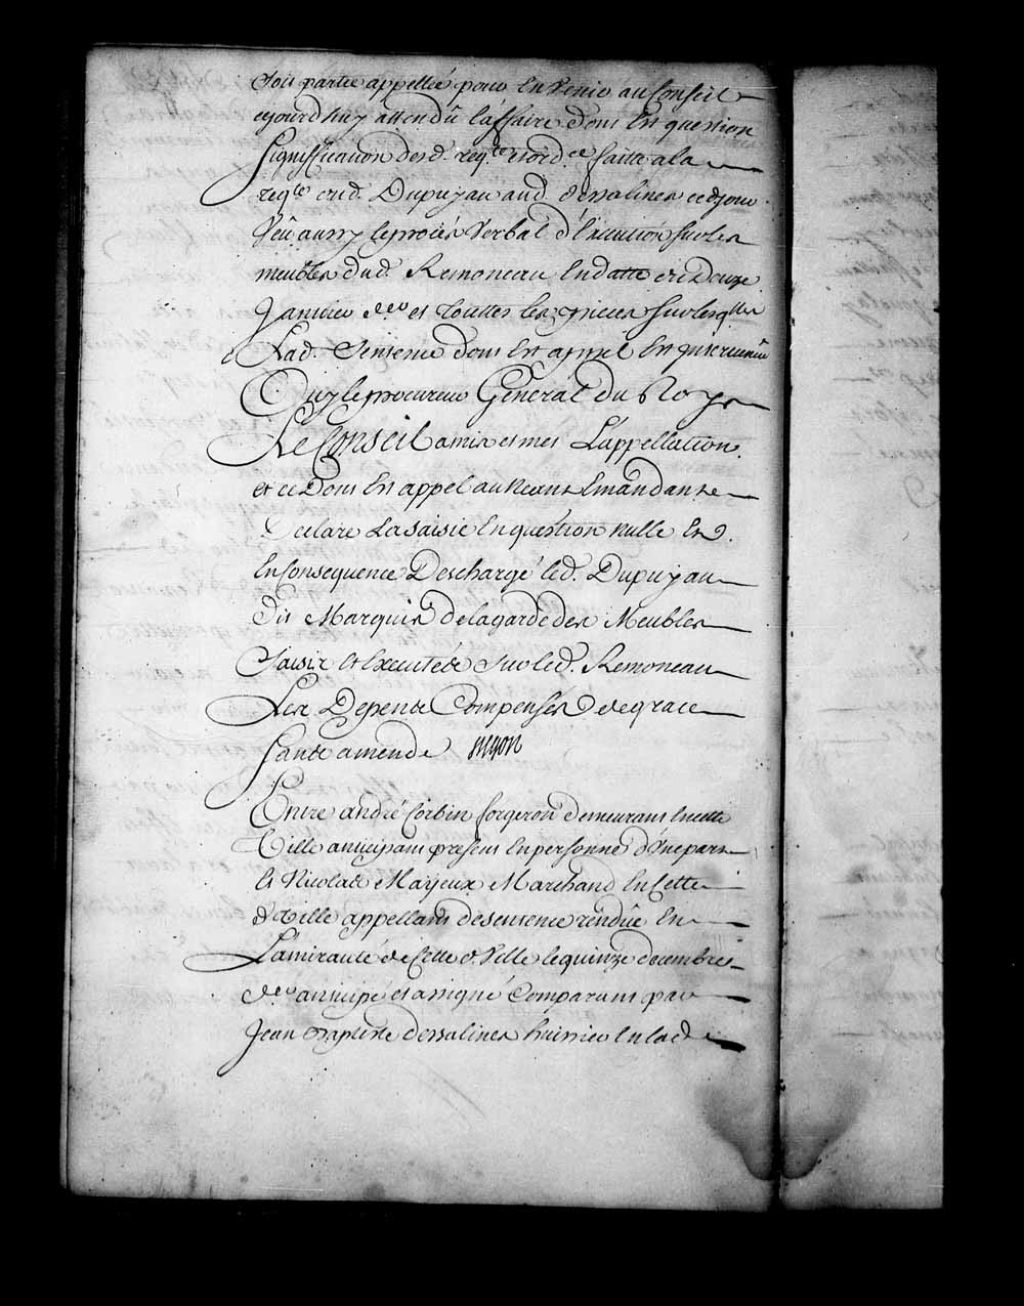 Soit partie appellée pour En Venir au Conseil
ajourdhuy attendû L'affaire dont Est question
Signiffication desd. reqte et ord.ce faitte a la
reqte dud. Dupuyau aud. dessalines cedjour
Veu aussy le procès Verbal d'Execution sur les
meubles dud. Remoneau En datte du Douze
Janvier der et Touttes les pieces sur lesqlles
Lad. Sentence dont Est appel Est intervenüe
Ouy le procureur Général du Roy
Le Conseil a mis et met L'appellation
et ce Dont Est appel au Neant Emandant
Declare La saisie En question nulle En
En Consequence Descharge led. Dupuyau
dit Marquis de la garde des Meubles
Saisis Et Executés Sur led. Remoneau
Les Depens Compensés de grace
Sans amende
Entre andré Corbin forgeron demeurant En cette
Ville anticipant present En personne d'Une part
Et Nicolas Mayeux Marchand En Cette
d. Ville appellant de sentence rendüe En
L'amirauté de Cette d. Ville le quinze decembre
der anticipé et assigné Comparant par
Jean Baptiste dessalines huissier En lad